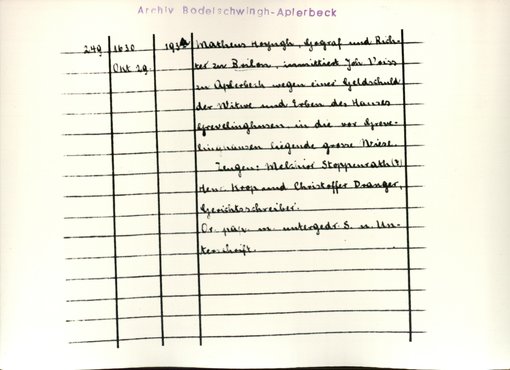 Archiv Bodelschwingh-Aplerbeck
249 1630 193 Matheus Hoyngh, Gograf und Rich-
Okt 29. ter zu Brilon, immittiert Joh. Voiss
zu Aplerbeck wegen einer Geldschuld
der Witwe und Erben des Hauses
Grevelinghusen, in die vor Greve-
linghusen liegende grosse Wiese.
Zeugen: Melchior Stoppenrath (?)
Henr. Koop und Christoffer Dranger,
Gerichtsschreiber.
Or. pap. m. untergedr. S. u. Un-
terschrift.